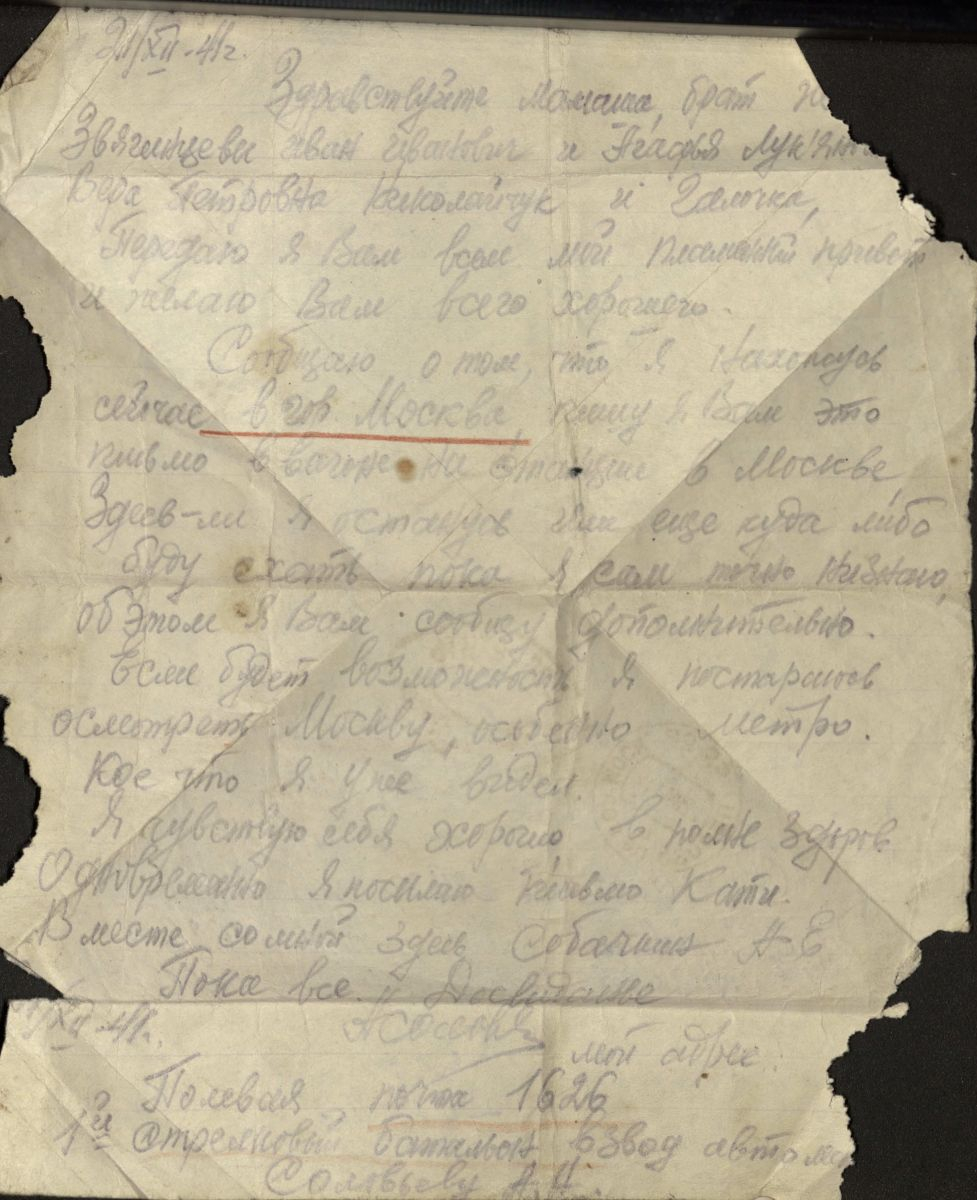 21/XII-41г.
Здравствуйте мамаша, брат
Звягинцевы Иван Иванович и Агафья
Вера Петровна Николайчук и Галочка,
Передаю я Вам всем мой пламенный привет
и желаю Вам всего хорошего.
Сообщаю о том, что я нахожусь
сейчас в гор. Москва, пишу я Вам это
письмо в вагоне на станции в Москве,
Здесь-ли я останусь или еще куда либо
буду ехать пока я сам точно незнаю,
об этом я Вам сообщу дополнительно.
Если будет возможность я постараюсь
осмотреть Москву, особенно метро.
Кое что я уже видел.
Я чувствую себя хорошо в полне здоров
Одновременно я посылаю письмо Кати.
Вместе сомной здесь Собачкин А.Е
Пока все. Досвидание
/XII-41г.
мой адрес.
Полевая почта 1626
1й стрелковый батальон взвод
Соловьеву А.И.